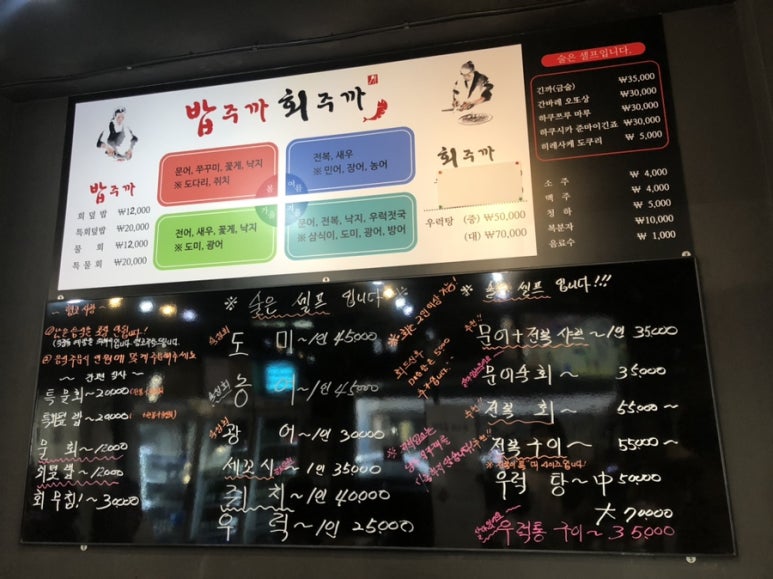 밥주까 회주까
밥주까
회덮밥 ₩12,000
특회덮밥 ₩20,000
물회 ₩12,000
특물회 ₩20,000
문어, 쭈꾸미, 꽃게, 낙지
※ 도다리, 쥐치
봄
전복, 새우
※ 민어, 장어, 농어
여름
전어, 새우, 꽃게, 낙지
※ 도미, 광어
가을
문어, 전복, 낙지, 우럭젓국
※ 삼식이, 도미, 광어, 방어
회주까
우럭탕 (중) ₩50,000
(대) ₩70,000
술은 셀프입니다.
긴까(금술) ₩35,000
간바레 오또상 ₩30,000
하쿠쯔루 마루 ₩30,000
하쿠시카 준마이긴죠 ₩30,000
히레사케 도쿠리 ₩5,000
소주 ₩4,000
맥주 ₩4,000
청하 ₩5,000
복분자 ₩10,000
음료수 ₩1,000
~ 간편 식사 ~
특물회~20000
특회덮밥~20000
물회~12000
회덮밥~12000
회무침!~30000
※ 술은 셀프 입니다
도미~1인 45000
농어~1인 45000
광어~1인 30000
세꼬시~1인 35000
쥐치~1인 40000
우럭~1인 25000
※ 회는 2인 이상 주문!
술은 셀프 입니다!!!
문어+전복 샤브~1인 35000
문어숙회~ 35000
전복 회~ 55000~
전복구이~ 55000~
우럭탕~中 50000
大 70000
우럭통구이~35000